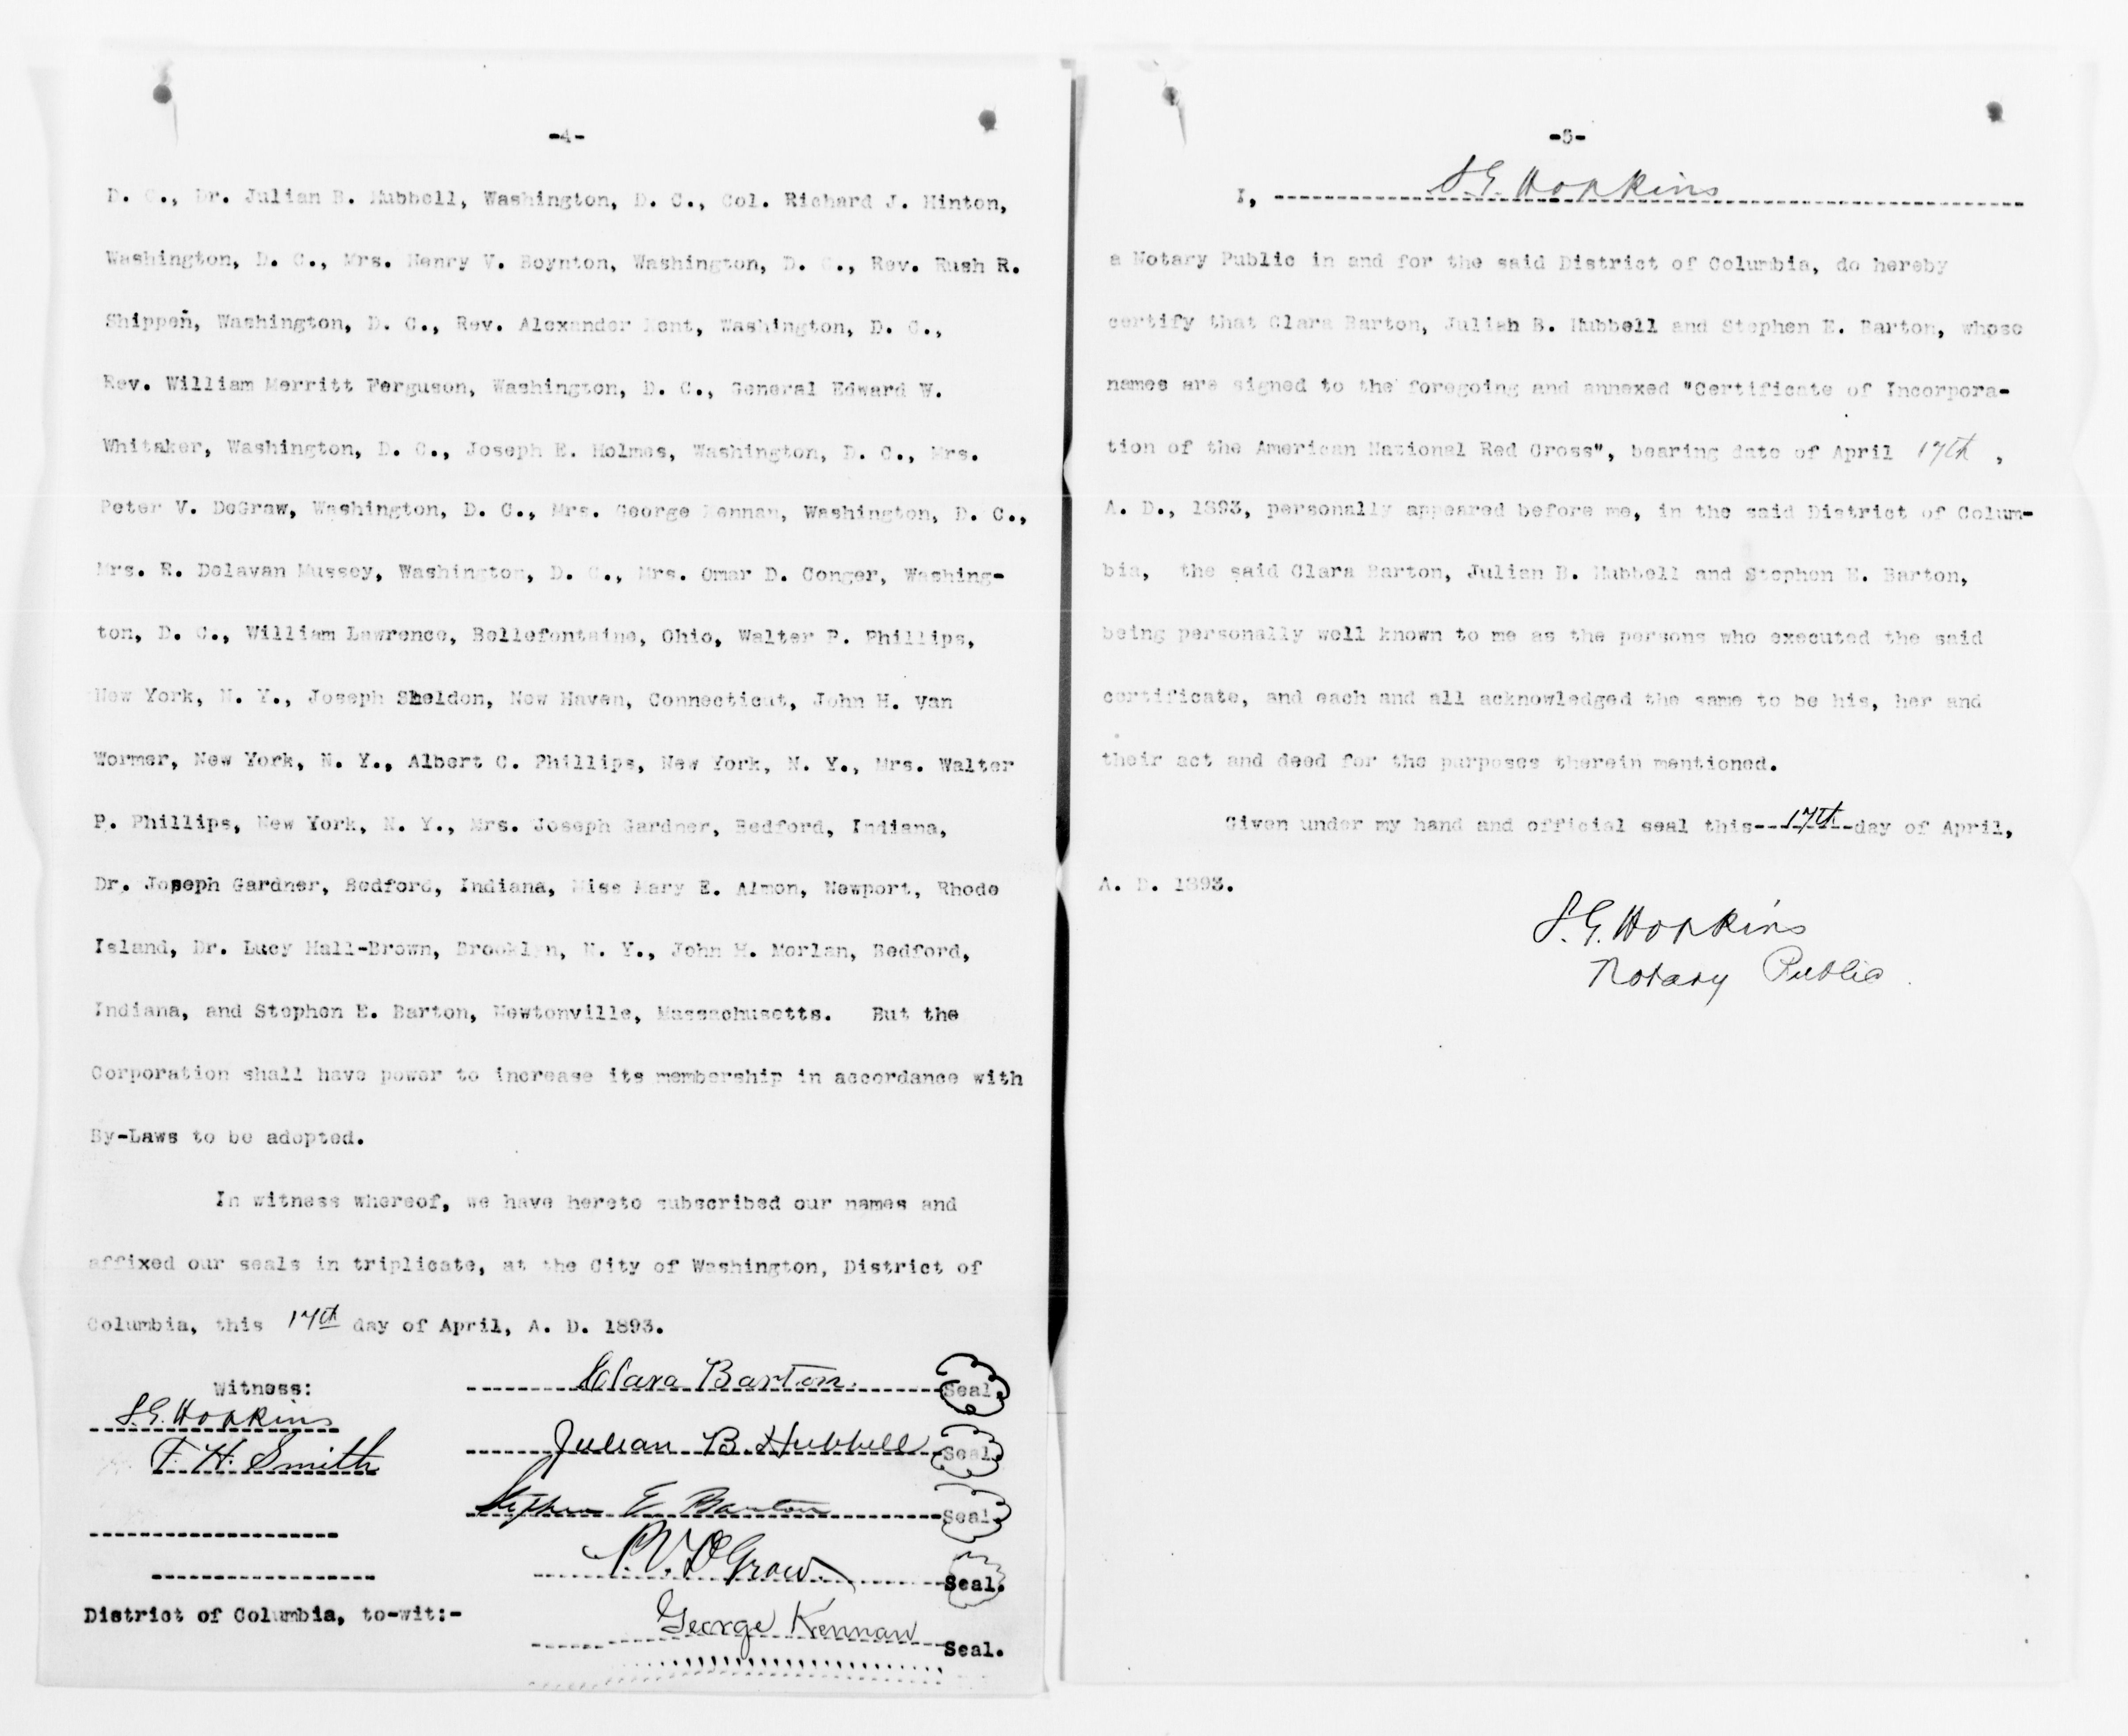 -4-
D. C., Dr. Julian B. Hubbell, Washington, D. C., Col. Richard J. Hinton,
Washington, D. C., Mrs. Henry V. Boynton, Washington, D. C., Rev. Rush R.
Shippen, Washington, D. C., Rev. Alexander Kent, Washington, D. C.,
Rev. William Merritt Ferguson, Washington, D. C., General Edward W.
Whitaker, Washington, D. C., Joseph E. Holmes, Washington, D. C., Mrs.
Peter V. DeGraw, Washington, D. C., Mrs. George Kennan, Washington, D. C.,
Mrs. R. Delavan Mussey, Washington, D. C., Mrs. Omar D. Conger, Washing-
ton, D. C., William Lawrence, Bellefontaine, Ohio, Walter P. Phillips,
New York, N. Y., Joseph Sheldon, New Haven, Connecticut, John H. Van
Wormer, New York, N. Y., Albert C. Phillips, New York, N. Y., Mrs. Walter
P. Phillips, New York, N. Y., Mrs. Joseph Gardner, Bedford, Indiana,
Dr. Joseph Gardner, Bedford, Indiana, Miss Mary E. Almon, Newport, Rhode
Island, Dr. Lucy Hall-Brown, Brooklyn, N. Y., John H. Morlan, Bedford,
Indiana, and Stephen E. Barton, Newtonville, Massachusetts. But the
Corporation shall have power to increase its membership in accordance with
By-Laws to be adopted.
In witness whereof, we have hereto subscribed our names and
affixed our seals in triplicate, at the City of Washington, District of
Columbia, this 17th day of April, A. D. 1893.
Witness:
S.G. Hopkins
F. H. Smith
Clara Barton. Seal.
Julian B. Hubbell Seal.
Stephen E Barton Seal.
P. V. DeGraw. Seal.
George Kennan Seal.
District of Columbia, to-wit:-
-5-
I, S.G. Hopkins
a Notary Public in and for the said District of Columbia, do hereby
certify that Clara Barton, Julian B. Hubbell and Stephen E. Barton, whose
names are signed to the foregoing and annexed "Certificate of Incorpora-
tion of the American National Red Cross", bearing date of April 17th ,
A. D., 1893, personally appeared before me, in the said District of Colum-
bia, the said Clara Barton, Julian B. Hubbell and Stephen E. Barton,
being personally well known to me as the persons who executed the said
certificate, and each and all acknowledged the same to be his, her and
their act and deed for the purposes therein mentioned.
Given under my hand and official seal this--17th--day of April,
A. D. 1893.
S.G. Hopkins
Notary Public.